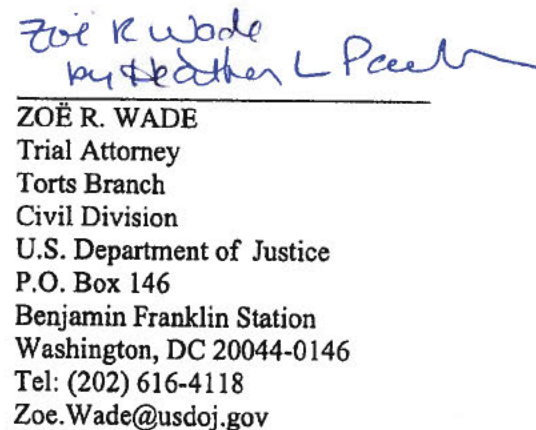 Zoë R Wade
by Heather L
ZOË R. WADE
Trial Attorney
Torts Branch
Civil Division
U.S. Department of Justice
P.O. Box 146
Benjamin Franklin Station
Washington, DC 20044-0146
Tel: (202) 616-4118
Zoe.Wade@usdoj.gov